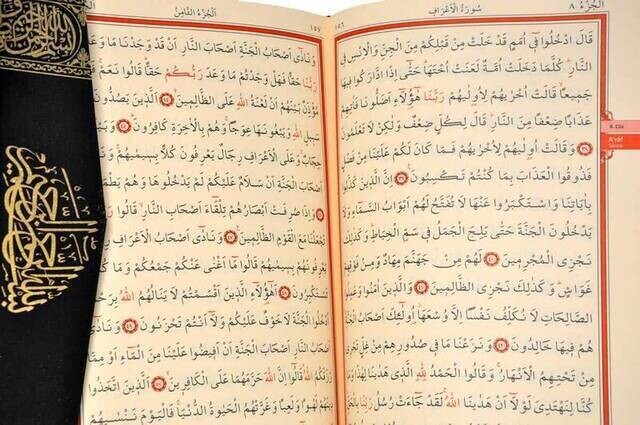 الْجُزْءُ ٨
سُورَةُ الْاَعْرَافِ
١٥٦
قَالَ ادْخُلُوا فٓي اُمَمٍ قَدْ خَلَتْ مِنْ قَبْلِكُمْ مِنَ الْجِنِّ وَالْاِنْسِ فِي
النَّارِ كُلَّمَا دَخَلَتْ اُمَّةٌ لَعَنَتْ اُخْتَهَا حَتّٰٓى اِذَا ادَّارَكُوا فٖيهَا
جَمٖيعًا قَالَتْ اُخْرٰيهُمْ لِاُولٰيهُمْ رَبَّنَا هٰٓؤُ۬لَٓاءِ اَضَلُّونَا فَاٰتِهِمْ
عَذَابًا ضِعْفًا مِنَ النَّارِ قَالَ لِكُلٍّ ضِعْفٌ وَلٰكِنْ لَا تَعْلَمُونَ
﴿٣٨﴾ وَقَالَتْ اُولٰيهُمْ لِاُخْرٰيهُمْ فَمَا كَانَ لَكُمْ عَلَيْنَا مِنْ فَضْلٍ
فَذُوقُوا الْعَذَابَ بِمَا كُنْتُمْ تَكْسِبُونَ ﴿٣٩﴾ اِنَّ الَّذٖينَ كَذَّبُوا
بِاٰيَاتِنَا وَاسْتَكْبَرُوا عَنْهَا لَا تُفَتَّحُ لَهُمْ اَبْوَابُ السَّمَٓاءِ وَلَا
يَدْخُلُونَ الْجَنَّةَ حَتّٰى يَلِجَ الْجَمَلُ فٖي سَمِّ الْخِيَاطِ وَكَذٰلِكَ
نَجْزِي الْمُجْرِمٖينَ ﴿٤٠﴾ لَهُمْ مِنْ جَهَنَّمَ مِهَادٌ وَمِنْ فَوْقِهِمْ
غَوَاشٍ وَكَذٰلِكَ نَجْزِي الظَّالِمٖينَ ﴿٤١﴾ وَالَّذٖينَ اٰمَنُوا وَعَمِلُوا
الصَّالِحَاتِ لَا نُكَلِّفُ نَفْسًا اِلَّا وُسْعَهَٓا اُولٰٓئِكَ اَصْحَابُ الْجَنَّةِ
هُمْ فٖيهَا خَالِدُونَ ﴿٤٢﴾ وَنَزَعْنَا مَا فٖي صُدُورِهِمْ مِنْ غِلٍّ تَجْرٖي
مِنْ تَحْتِهِمُ الْاَنْهَارُ وَقَالُوا الْحَمْدُ لِلّٰهِ الَّذٖي هَدٰينَا لِهٰذَا وَمَا
كُنَّا لِنَهْتَدِيَ لَوْلَٓا اَنْ هَدٰينَا اللّٰهُ لَقَدْ جَٓاءَتْ رُسُلُ رَبِّنَا بِالْحَقِّ
8. Cüz
A'râf
Sûresi
١٥٧
اَلْجُزْءُ الثَّامِنُ
وَنَادٰٓى اَصْحَابُ الْجَنَّةِ اَصْحَابَ النَّارِ اَنْ قَدْ وَجَدْنَا مَا وَعَدَنَا
رَبُّنَا حَقًّا فَهَلْ وَجَدْتُمْ مَا وَعَدَ رَبُّكُمْ حَقًّا قَالُوا نَعَمْ
مُؤَذِّنٌ بَيْنَهُمْ اَنْ لَعْنَةُ اللّٰهِ عَلَى الظَّالِمٖينَ ﴿٤٤﴾ اَلَّذٖينَ يَصُدُّونَ
سَبٖيلِ اللّٰهِ وَيَبْغُونَهَا عِوَجًا وَهُمْ بِالْاٰخِرَةِ كَافِرُونَ ﴿٤٥﴾
حِجَابٌ وَعَلَى الْاَعْرَافِ رِجَالٌ يَعْرِفُونَ كُلًّا بِسٖيمٰيهُمْ وَنَادَوْا
اَصْحَابَ الْجَنَّةِ اَنْ سَلَامٌ عَلَيْكُمْ لَمْ يَدْخُلُوهَا وَهُمْ يَطْمَعُونَ
وَاِذَا صُرِفَتْ اَبْصَارُهُمْ تِلْقَٓاءَ اَصْحَابِ النَّارِ قَالُوا رَبَّنَا
تَجْعَلْنَا مَعَ الْقَوْمِ الظَّالِمٖينَ ﴿٤٧﴾ وَنَادٰٓى اَصْحَابُ الْاَعْرَافِ رِجَالًا
يَعْرِفُونَهُمْ بِسٖيمٰيهُمْ قَالُوا مَٓا اَغْنٰى عَنْكُمْ جَمْعُكُمْ وَمَا كُنْتُمْ
تَسْتَكْبِرُونَ ﴿٤٨﴾ اَهٰٓؤُ۬لَٓاءِ الَّذٖينَ اَقْسَمْتُمْ لَا يَنَالُهُمُ اللّٰهُ بِرَحْمَةٍ
اُدْخُلُوا الْجَنَّةَ لَا خَوْفٌ عَلَيْكُمْ وَلَٓا اَنْتُمْ تَحْزَنُونَ ﴿٤٩﴾ وَنَادٰٓى
اَصْحَابُ النَّارِ اَصْحَابَ الْجَنَّةِ اَنْ اَفٖيضُوا عَلَيْنَا مِنَ الْمَٓاءِ اَوْ مِمَّا
رَزَقَكُمُ اللّٰهُ قَالُٓوا اِنَّ اللّٰهَ حَرَّمَهُمَا عَلَى الْكَافِرٖينَ ﴿٥٠﴾ اَلَّذٖينَ اتَّخَذُوا
دٖينَهُمْ لَهْوًا وَلَعِبًا وَغَرَّتْهُمُ الْحَيٰوةُ الدُّنْيَا فَالْيَوْمَ نَنْسٰيهُمْ